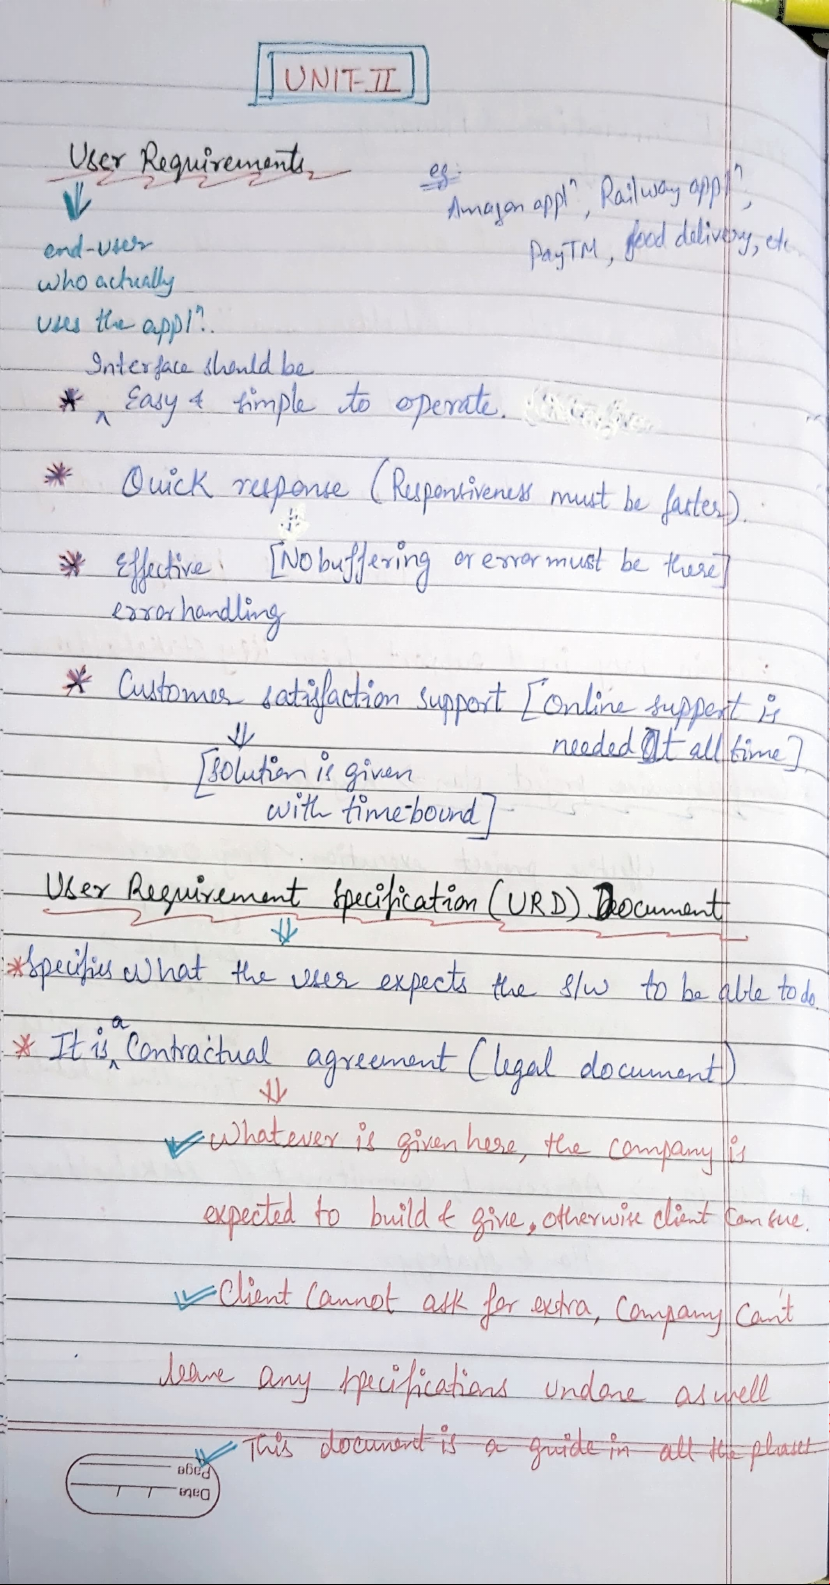 UNIT-II
User Requirements
eg:
Amazon applⁿ, Railway applⁿ,
PayTM, food delivery, etc
⇓
end-user
who actually
uses the applⁿ.
Interface should be
* ^ Easy & simple to operate.
* Quick response (Responsiveness must be faster).
* Effective [No buffering or error must be there]
error handling
* Customer satisfaction support [Online support is
needed At all time]
⇓
[solution is given
with time-bound]
User Requirement Specification (URD) Document
⇓
* Specifies what the user expects the s/w to be able to do
a
* It is ^ Contractual agreement (legal document)
⇓
✓ Whatever is given here, the company is
expected to build & give, otherwise client can sue.
✓ Client cannot ask for extra, Company can't
leave any specifications undone as well
✓ This document is a guide in all the phases
Page
Date